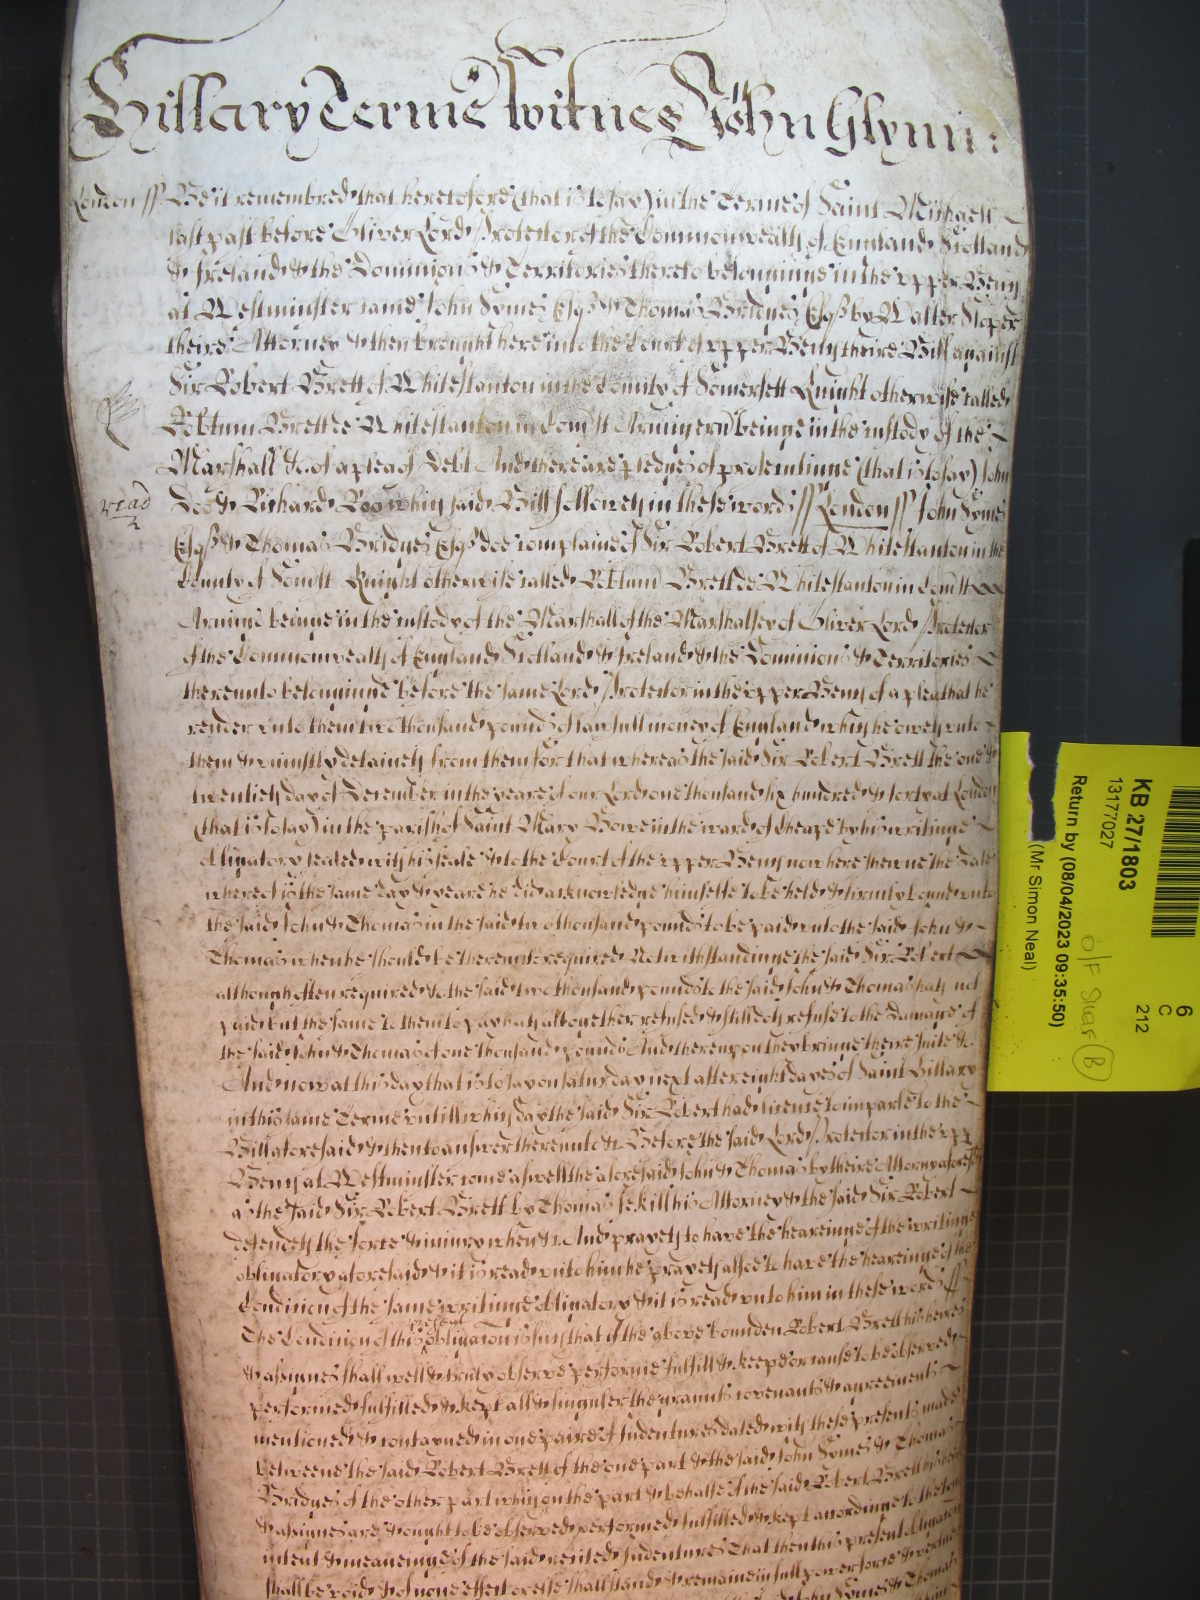 Hillary Terme Witnes John Glynn:
London ss Be it remembred that heretofore (that is to say) in the Terme of Saint Michaell
last past before Oliver Lord Protector of the Commonwealth of England Scotland
& Ireland & the Dominions & Territories thereto belonginge in the upper Bench
at Westminster came John Symes Esqr & Thomas Bridges Esqr by Walter Sloper
theire Attorney & then brought here into the Court of upper Bench theire Bill against
Sir Robert Brett of Whitestanton in the County of Somersett Knight otherwise called
Robtum Brett de Whitestanton in Com Somst Armigerum beinge in the custody of the
Marshall &c of a plea of Debt And there are pledges of prosecutinge (that is to say) John
read
Doe & Richard Roo which said Bill followeth in these words ss London ss John Symes
Esqr & Thomas Bridges Esqr doe complaine of Sir Robert Brett of Whitestanton in the
County of Somst Knight otherwise called Robtum Brett de Whitestanton in Com Somst
Armige beinge in the custody of the Marshall of the Marshalsey of Oliver Lord Protector
of the Commonwealth of England Scotland & Ireland & the Dominions & Territories
thereunto belonginge before the same Lord Protector in the upper Bench of a plea that he
render unto them two thousand pounds of lawfull money of England which he oweth unto
them & uniustly detaineth from them for that whereas the said Sir Robert Brett the one &
twentieth day of December in the yeare of our Lord one thousand six hundred & forty at London
(that is to say) in the parish of Saint Mary Bowe in the ward of Cheape by his writinge
obligatory sealed with his seale & to the Court of the upper Bench now here shewne the date
whereof is the same day & yeare he did acknowledge himselfe to be held & firmly bound unto
the said John & Thomas in the said two thousand pounds to be paid unto the said John &
Thomas when he should be thereunto required Notwithstandinge the said Sir Robert
although often required &c the said two thousand pounds to the said John & Thomas hath not
paid but the same to them to pay hath altogether refused & still doth refuse to the damage of
the said John & Thomas of one thousand pounds And thereupon they bringe theire suite &c
And now at this day that is to say on saturday next after eight dayes of Saint Hillary
in this same Terme untill which day the said Sir Robert had licence to imparle to the
Bill aforesaid & then to answer thereunto &c Before the said Lord Protector in the upp
Bench at Westminster come aswell the aforesaid John & Thomas by theire Attorny aforesd
as the said Sir Robert Brett by Thomas his Attorney & the said Sir Robert
defendeth the force & iniury when &c And prayeth to have the heareinge of the writinge
obligatory aforesaid & it is read unto him he prayeth alsoe to have the heareinge of the
Condition of the same writinge obligatory & it is read unto him in these words ss
The Condition of this present obligacon is such that if the above bounden Robert Brett his heires
& assignes shall well & truly observe performe fulfill & keepe or cause to be observed
performed fulfilled & kept all & singuler the graunts covenants & agreements
mentioned & contayned in one paire of Indentures dated with these presents made
betweene the said Robert Brett of the one part & the said John Symes & Thomas
Bridges of the other part which on the part & behalfe of the said Robert Brett his heires
& assignes are & ought to be observed performed fulfilled & kept accordinge to the true
intent & meaneinge of the said recited Indentures That then this present obligacon
shall be void & of none effect or else shall stand & remaine in full power force & vertue
John Symes & Thomas
KB 27/1803
13177027
Return by (08/04/2023 09:35:50)
(Mr Simon Neal)
6
C
212
O/F Shelf B